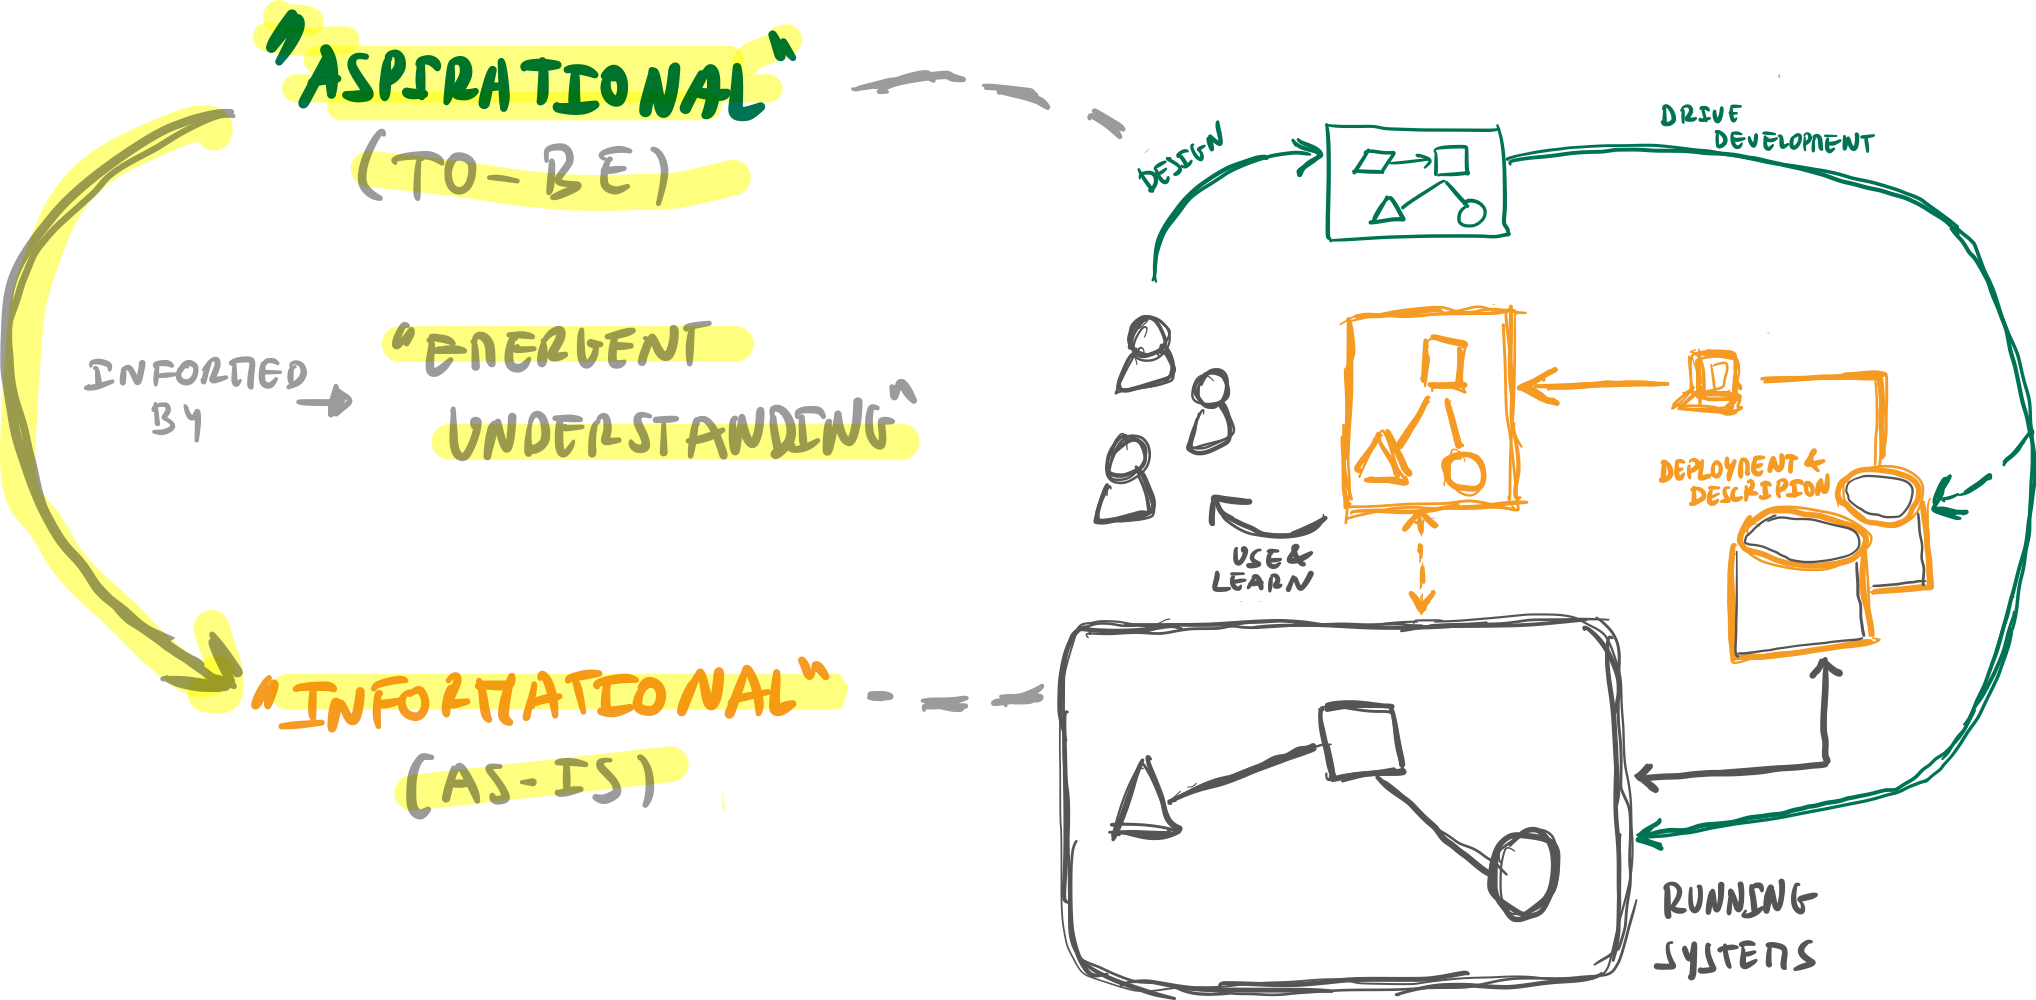 "ASPIRATIONAL"
(TO-BE)
INFORMED
BY
"EMERGENT
UNDERSTANDING"
"INFORMATIONAL"
(AS-IS)
DESIGN
DRIVE
DEVELOPMENT
USE &
LEARN
DEPLOYMENT &
DESCRIPION
RUNNING
SYSTEMS